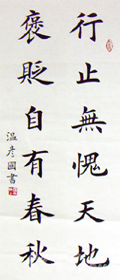 行止無愧天地
褒貶自有春秋
溫彥國書